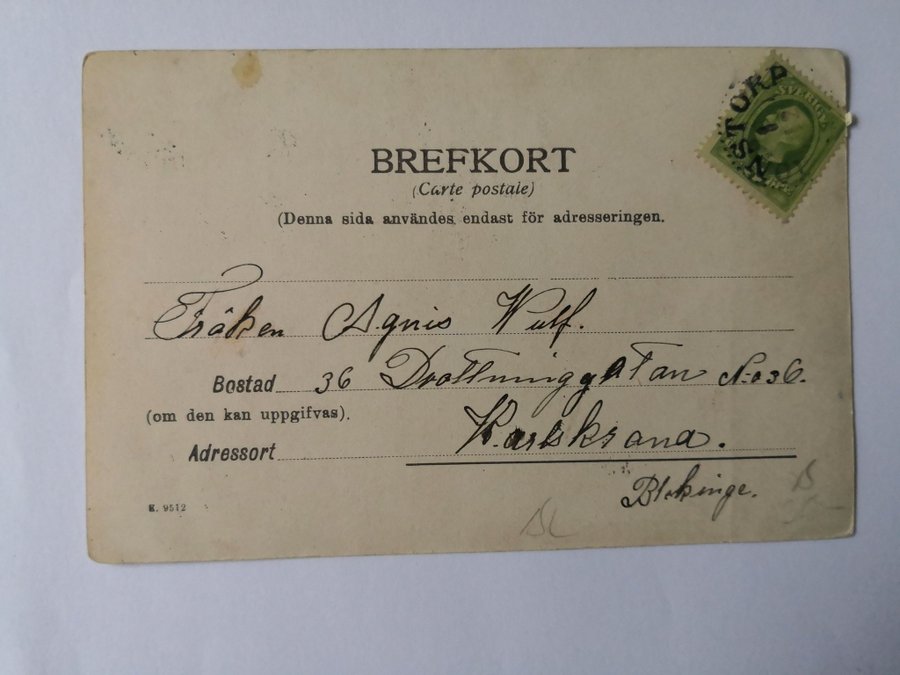 BREFKORT
(Carte postale)
(Denna sida användes endast för adresseringen.
Fröken Agnis Wulf.
Bostad 36 Drottninggatan No 36.
(om den kan uppgifvas).
Adressort Karlskrona.
Blekinge.
E. 9512
SVERIGE
TORP